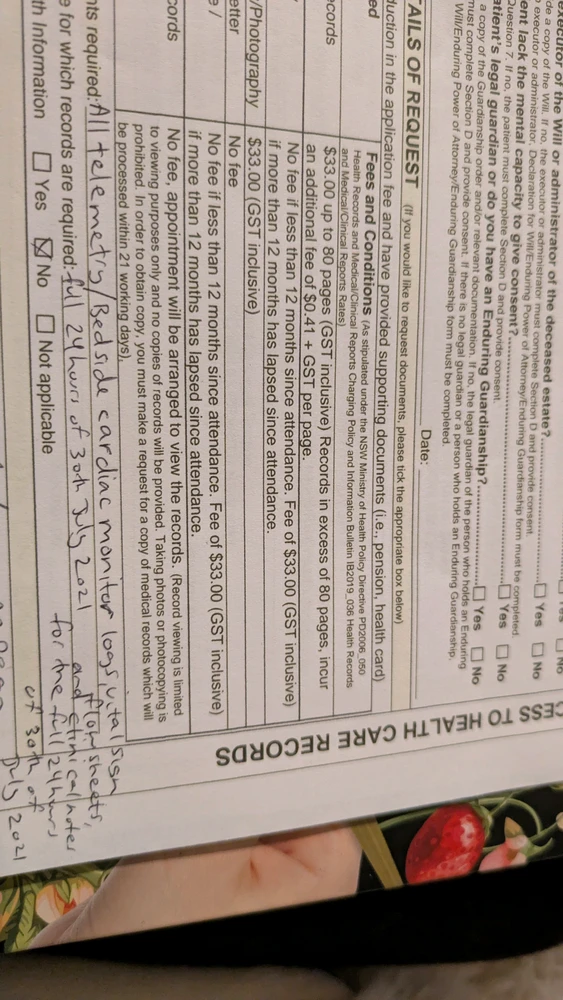 executor of the Will or administrator of the deceased estate?
de a copy of the Will. If no, the executor or administrator must complete Section D and provide consent.
executor or administrator, Declaration for Will/Enduring Power of Attorney/Enduring Guardianship form must be completed.
☐ Yes ☐ No
ent lack the mental capacity to give consent?
☐ Yes ☐ No
Question 7. If no, the patient must complete Section D and provide consent.
atient's legal guardian or do you have an Enduring Guardianship?
☐ Yes ☐ No
a copy of the Guardianship order and/or relevant documentation. If no, the legal guardian of the person who holds an Enduring
must complete Section D and provide consent. If there is no legal guardian or a person who holds an Enduring Guardianship,
Will/Enduring Power of Attorney/Enduring Guardianship form must be completed.
Date:
TAILS OF REQUEST (If you would like to request documents, please tick the appropriate box below)
duction in the application fee and have provided supporting documents (i.e., pension, health card)
ed
Fees and Conditions (As stipulated under the NSW Ministry of Health Policy Directive PD2006_050
Health Records and Medical/Clinical Reports Charging Policy and Information Bulletin IB2019_036 Health Records
and Medical/Clinical Reports Rates)
ecords
$33.00 up to 80 pages (GST inclusive) Records in excess of 80 pages, incur
an additional fee of $0.41 + GST per page.
No fee if less than 12 months since attendance. Fee of $33.00 (GST inclusive)
if more than 12 months has lapsed since attendance.
y/Photography
$33.00 (GST inclusive)
etter
No fee
e /
No fee if less than 12 months since attendance. Fee of $33.00 (GST inclusive)
if more than 12 months has lapsed since attendance.
cords
No fee, appointment will be arranged to view the records. (Record viewing is limited
to viewing purposes only and no copies of records will be provided. Taking photos or photocopying is
prohibited. In order to obtain copy, you must make a request for a copy of medical records which will
be processed within 21 working days)
nts required: All telemetry/Bedside cardiac monitor logs, vital sign
flow sheets,
and clinical notes
for the full 24 hours
of 30th of
July 2021
e for which records are required: full 24 hours of 30th July 2021
th Information ☐ Yes ☒ No ☐ Not applicable
CESS TO HEALTH CARE RECORDS